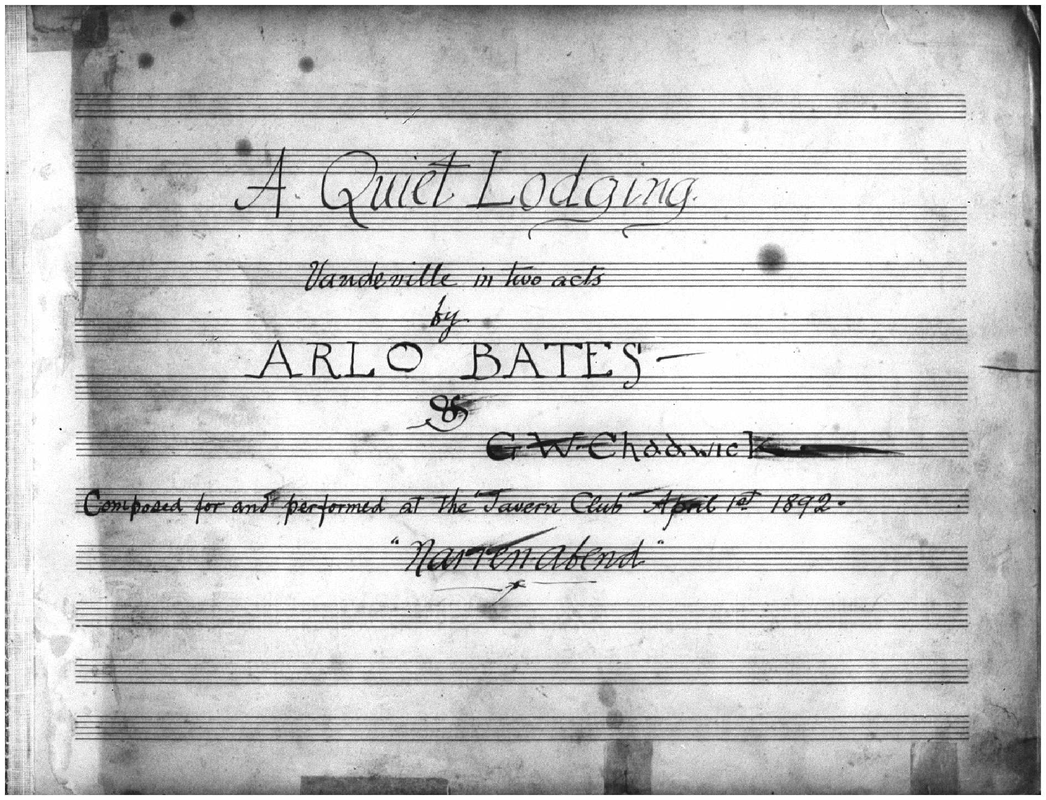 A. Quiet Lodging.
Vaudeville in two acts
by
ARLO BATES —
&
G. W. Chadwick
Composed for and performed at the "Tavern Club" April 1st 1892 -
"Narrenabend"